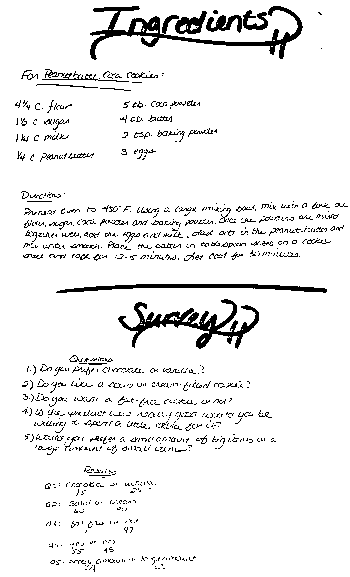 Ingredients
For Peanutbutter Coco Cookies:
4¼ c. flour 5 tb. coco powder
1½ c sugar 4 tb. butter
1¼ c milk 2 tsp. baking powder
¼ c peanut butter 3 eggs
Directions:
Preheat oven to 450° F. Using a large mixing bowl, mix with a fork the
flour, sugar, coco powder and baking powder. Once the powders are mixed
together well, add the eggs and milk, add in the peanut butter and
mix until smooth. Place the batter in on a cookie
sheet and bake for 12-5 minutes. Let cool for minutes.
Survey
Questions
1.) Do you prefer chocolate or vanilla?
2) Do you like a solid or cream-filled cookie?
3.) Do you want a fat-free cookie or not?
4.) If the product was really good would you be
willing to spend a little extra for it?
5) Would you prefer a small amount of big items or a
large amount of small items?
Results
Q1: chocolate or vanilla
Q2: Solid or cream
Q3: fat free or not
47
Q4: yes or no
55 45
Q5: